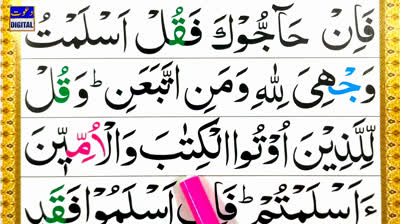 دعوت
DIGITAL
فَاِنْ حَآجُّوْكَ فَقُلْ اَسْلَمْتُ
وَجْهِیَ لِلّٰهِ وَمَنِ اتَّبَعَنِ ؕ وَقُلْ
لِّلَّذِیْنَ اُوْتُوا الْكِتٰبَ وَالْاُمِّیّٖنَ
ءَاَسْلَمْتُمْ ؕ فَاِنْ اَسْلَمُوْا فَقَدِ